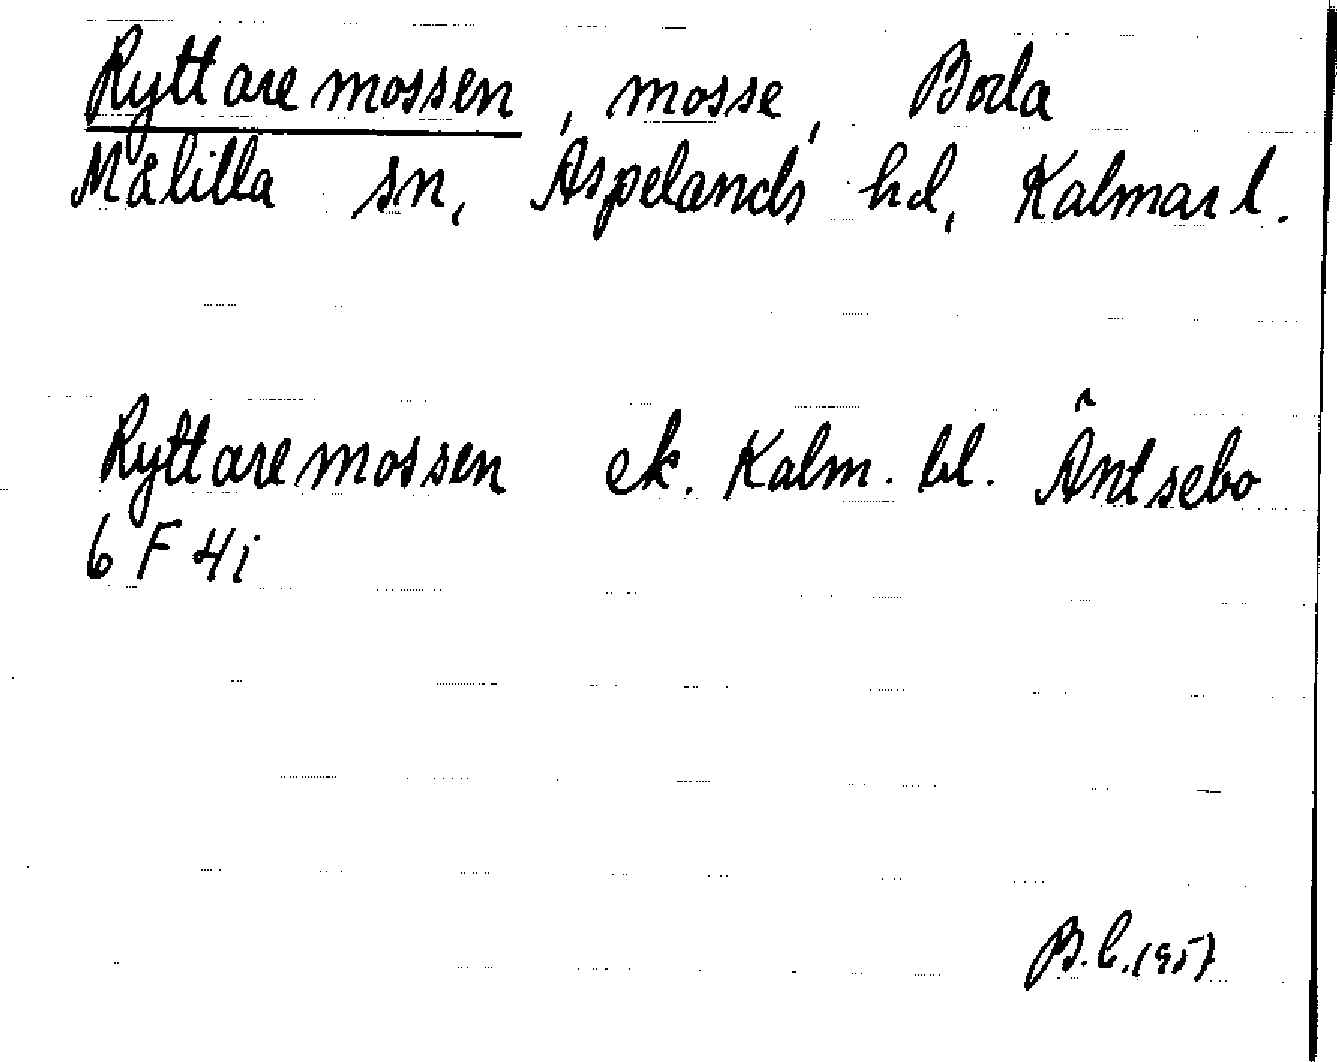 Ryttaremossen, mosse, Boda
Målilla sn, Aspelands hd, Kalmar l.
Ryttaremossen ek. Kalm. bl. Äntsebo
6 F 4i
B.C. 1957